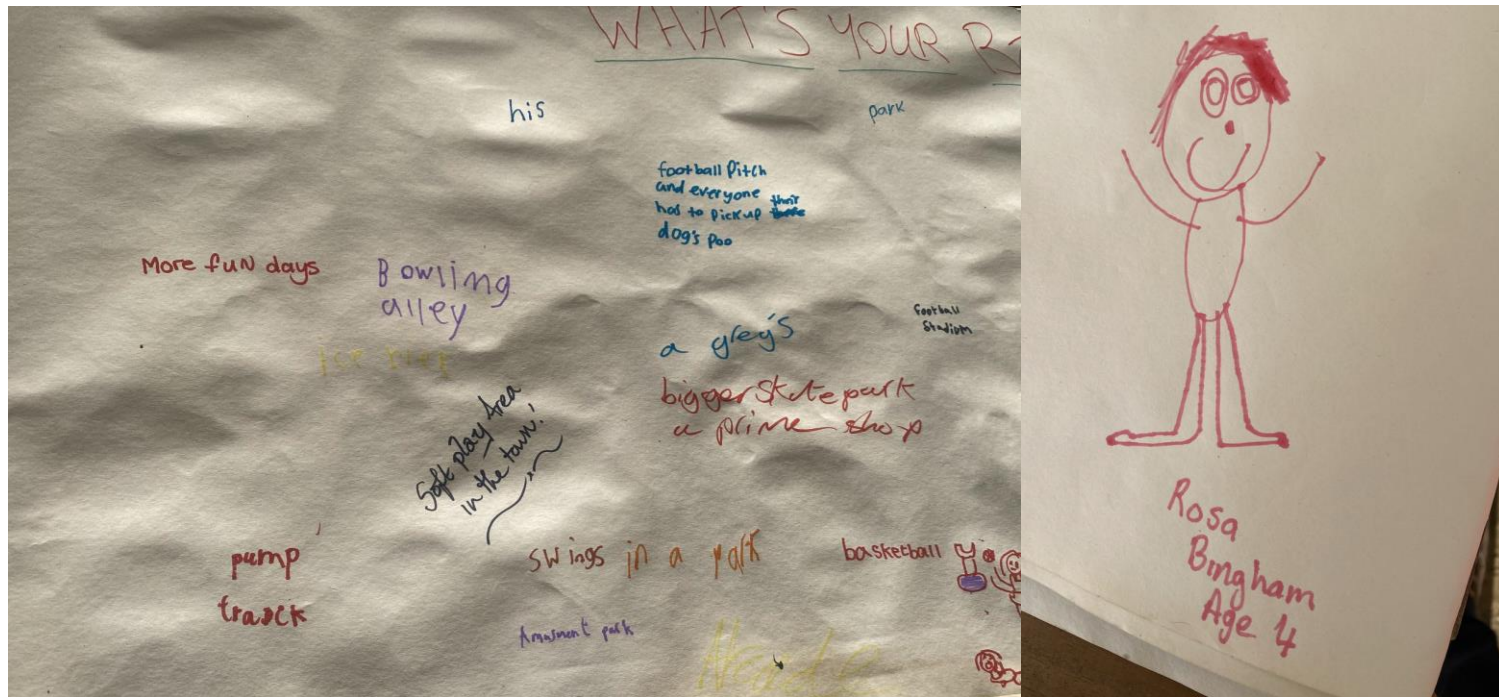 WHAT'S YOUR
his
park
football Pitch
and everyone their
has to pick up
dog's poo
More fun days
Bowling
alley
football
Stadium
a greg's
ice rink
bigger skate park
a prime shop
Soft play Area
in the town!
pump
track
swings in a park
basketball
Amusment park
Rosa
Bingham
Age 4